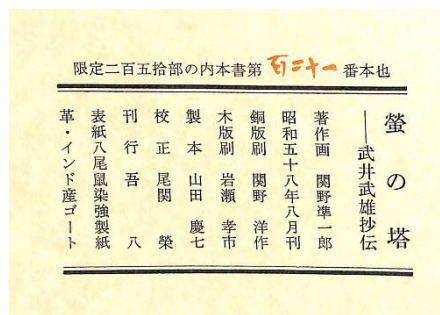 限定二百五拾部の内本書第百二十一番本也
螢の塔
――武井武雄抄伝
著作画 関野準一郎
昭和五十八年八月刊
銅版刷 関野洋作
木版刷 岩瀬孝市
製本 山田慶七
校正 尾関榮
刊行 吾八
表紙八尾鼠染強製紙
革・インド産ゴート